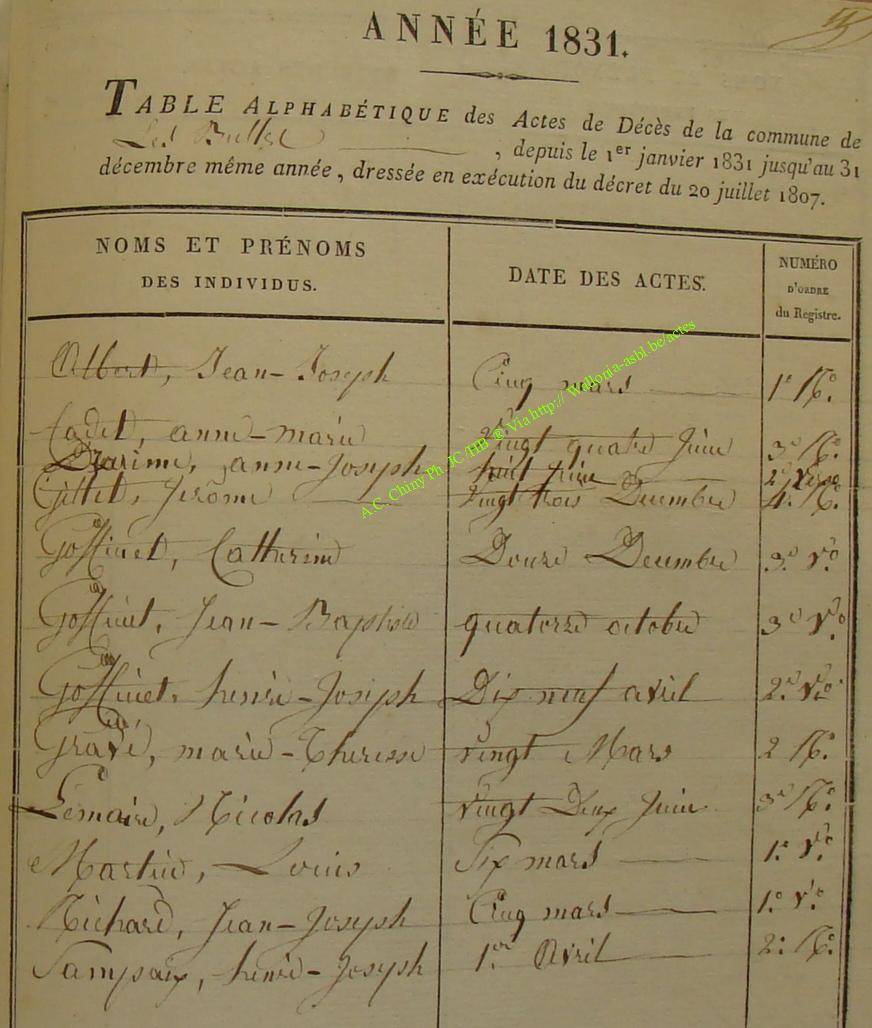 ANNÉE 1831.
TABLE ALPHABÉTIQUE des Actes de Décès de la commune de
Les Bulles, depuis le 1er janvier 1831 jusqu'au 31
décembre même année, dressée en exécution du décret du 20 juillet 1807.
NOMS ET PRÉNOMS DES INDIVIDUS. DATE DES ACTES. NUMÉRO D'ORDRE du Registre.
Albert, Jean-Joseph Cinq mars 1e Ro
Cadet, anne-marie vingt quatre Juin 3e Ro
anne-Joseph huit Juin 2e verso
Gillet, Jerome vingt trois Decembre 4e Ro
Goffinet, Catherine Douze Decembre 3e Vo
Goffinet, Jean-Baptiste quatorze octobre 3e Vo
Goffinet, henri-Joseph Dix neuf avril 2e Vo
Gravé, marie-Theresse vingt Mars 2 Ro
Lemaire, Nicolas vingt Deux Juin 3e Ro
Martin, Louis Six mars 1e Vo
Richard, Jean-Joseph Cinq mars 1e Vo
Sampaix, henri-Joseph 1er Avril 2e Ro
A.C. Chiny Ph. JC/HB © Via http:// Wallonia-asbl.be/actes